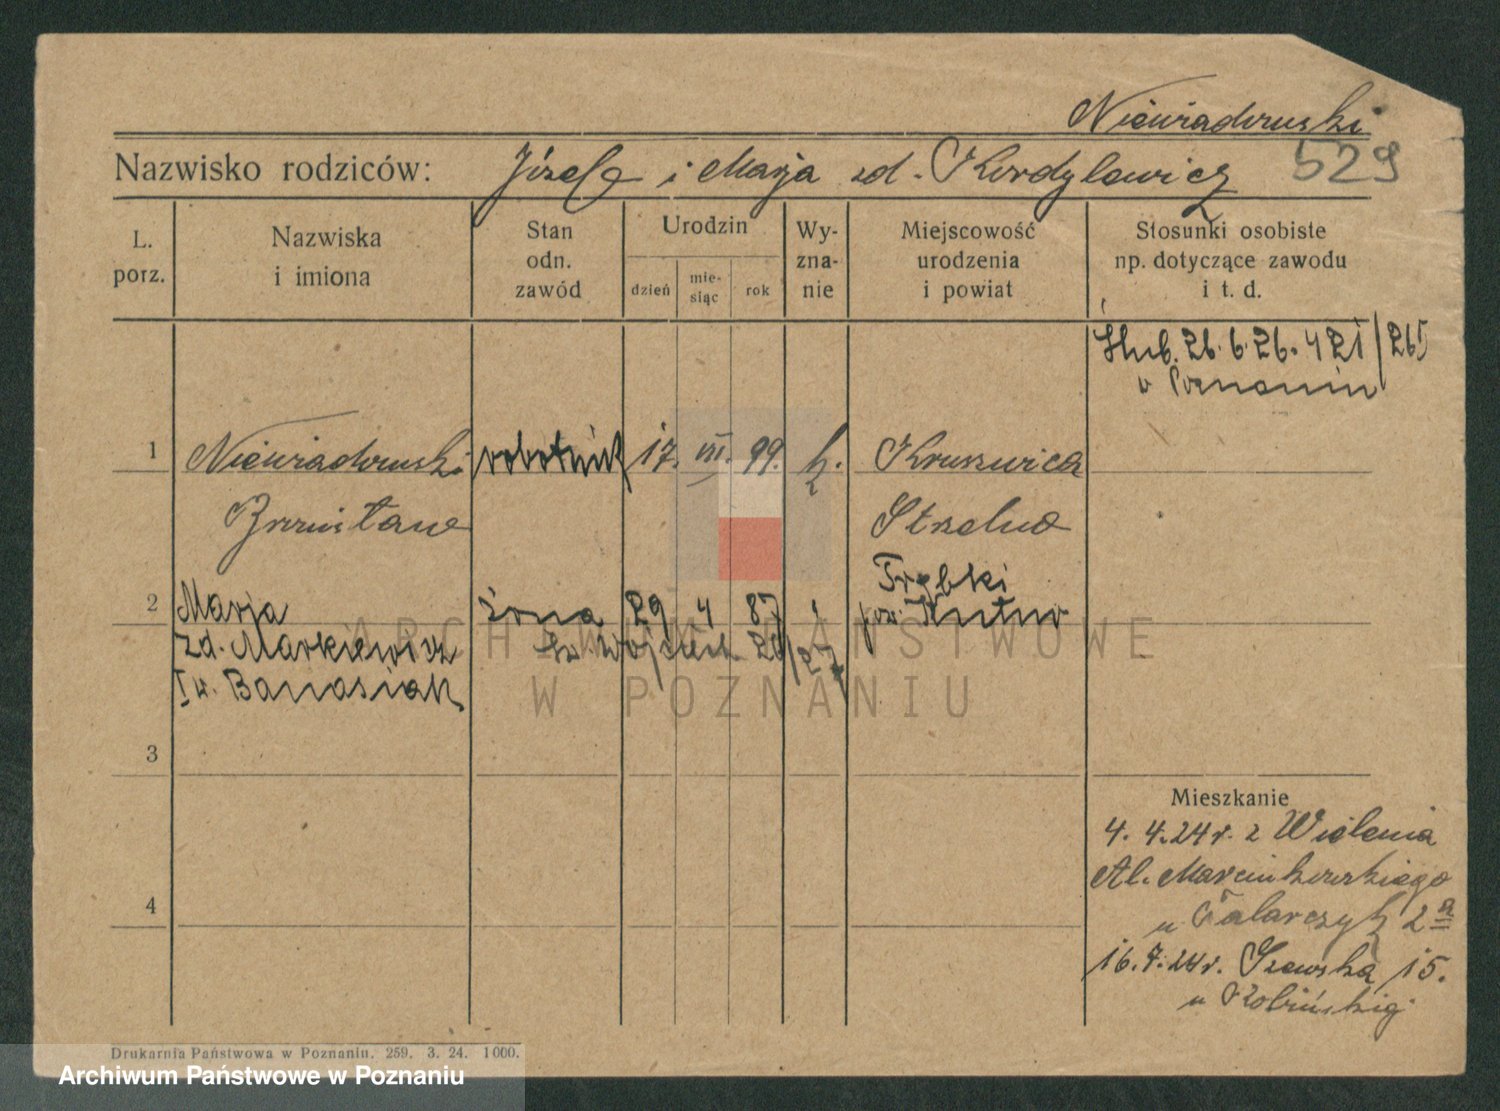 Niewiadomski
529
Nazwisko rodziców: Józef i Marja zd. Kordylewicz
L. porz.
Nazwiska i imiona
Stan odn. zawód
Urodzin
dzień
mie-
siąc
rok
Wy-
zna-
nie
Miejscowość urodzenia i powiat
Stosunki osobiste
np. dotyczące zawodu
i t. d.
Ślub. 26.6.26. 421/265
w Poznaniu
1 Niewiadomski robotnik 17. VII. 99. k. Kruszwica
Bronisław Strzelno
2 Marja żona 29 4 87 Trębki
pow. Kutno
zd. Markiewicz św. Wojciech 26/27
Iw. Banasiak
3
Mieszkanie
4. 4.24 r. z Wielenia
Al. Marcinkowskiego
u Talarczyk 2a
4
16.7.24 r. Szewska 15.
u
Drukarnia Państwowa w Poznaniu. 259. 3. 24. 1000.
ARCHIWUM PAŃSTWOWE
W POZNANIU
Archiwum Państwowe w Poznaniu